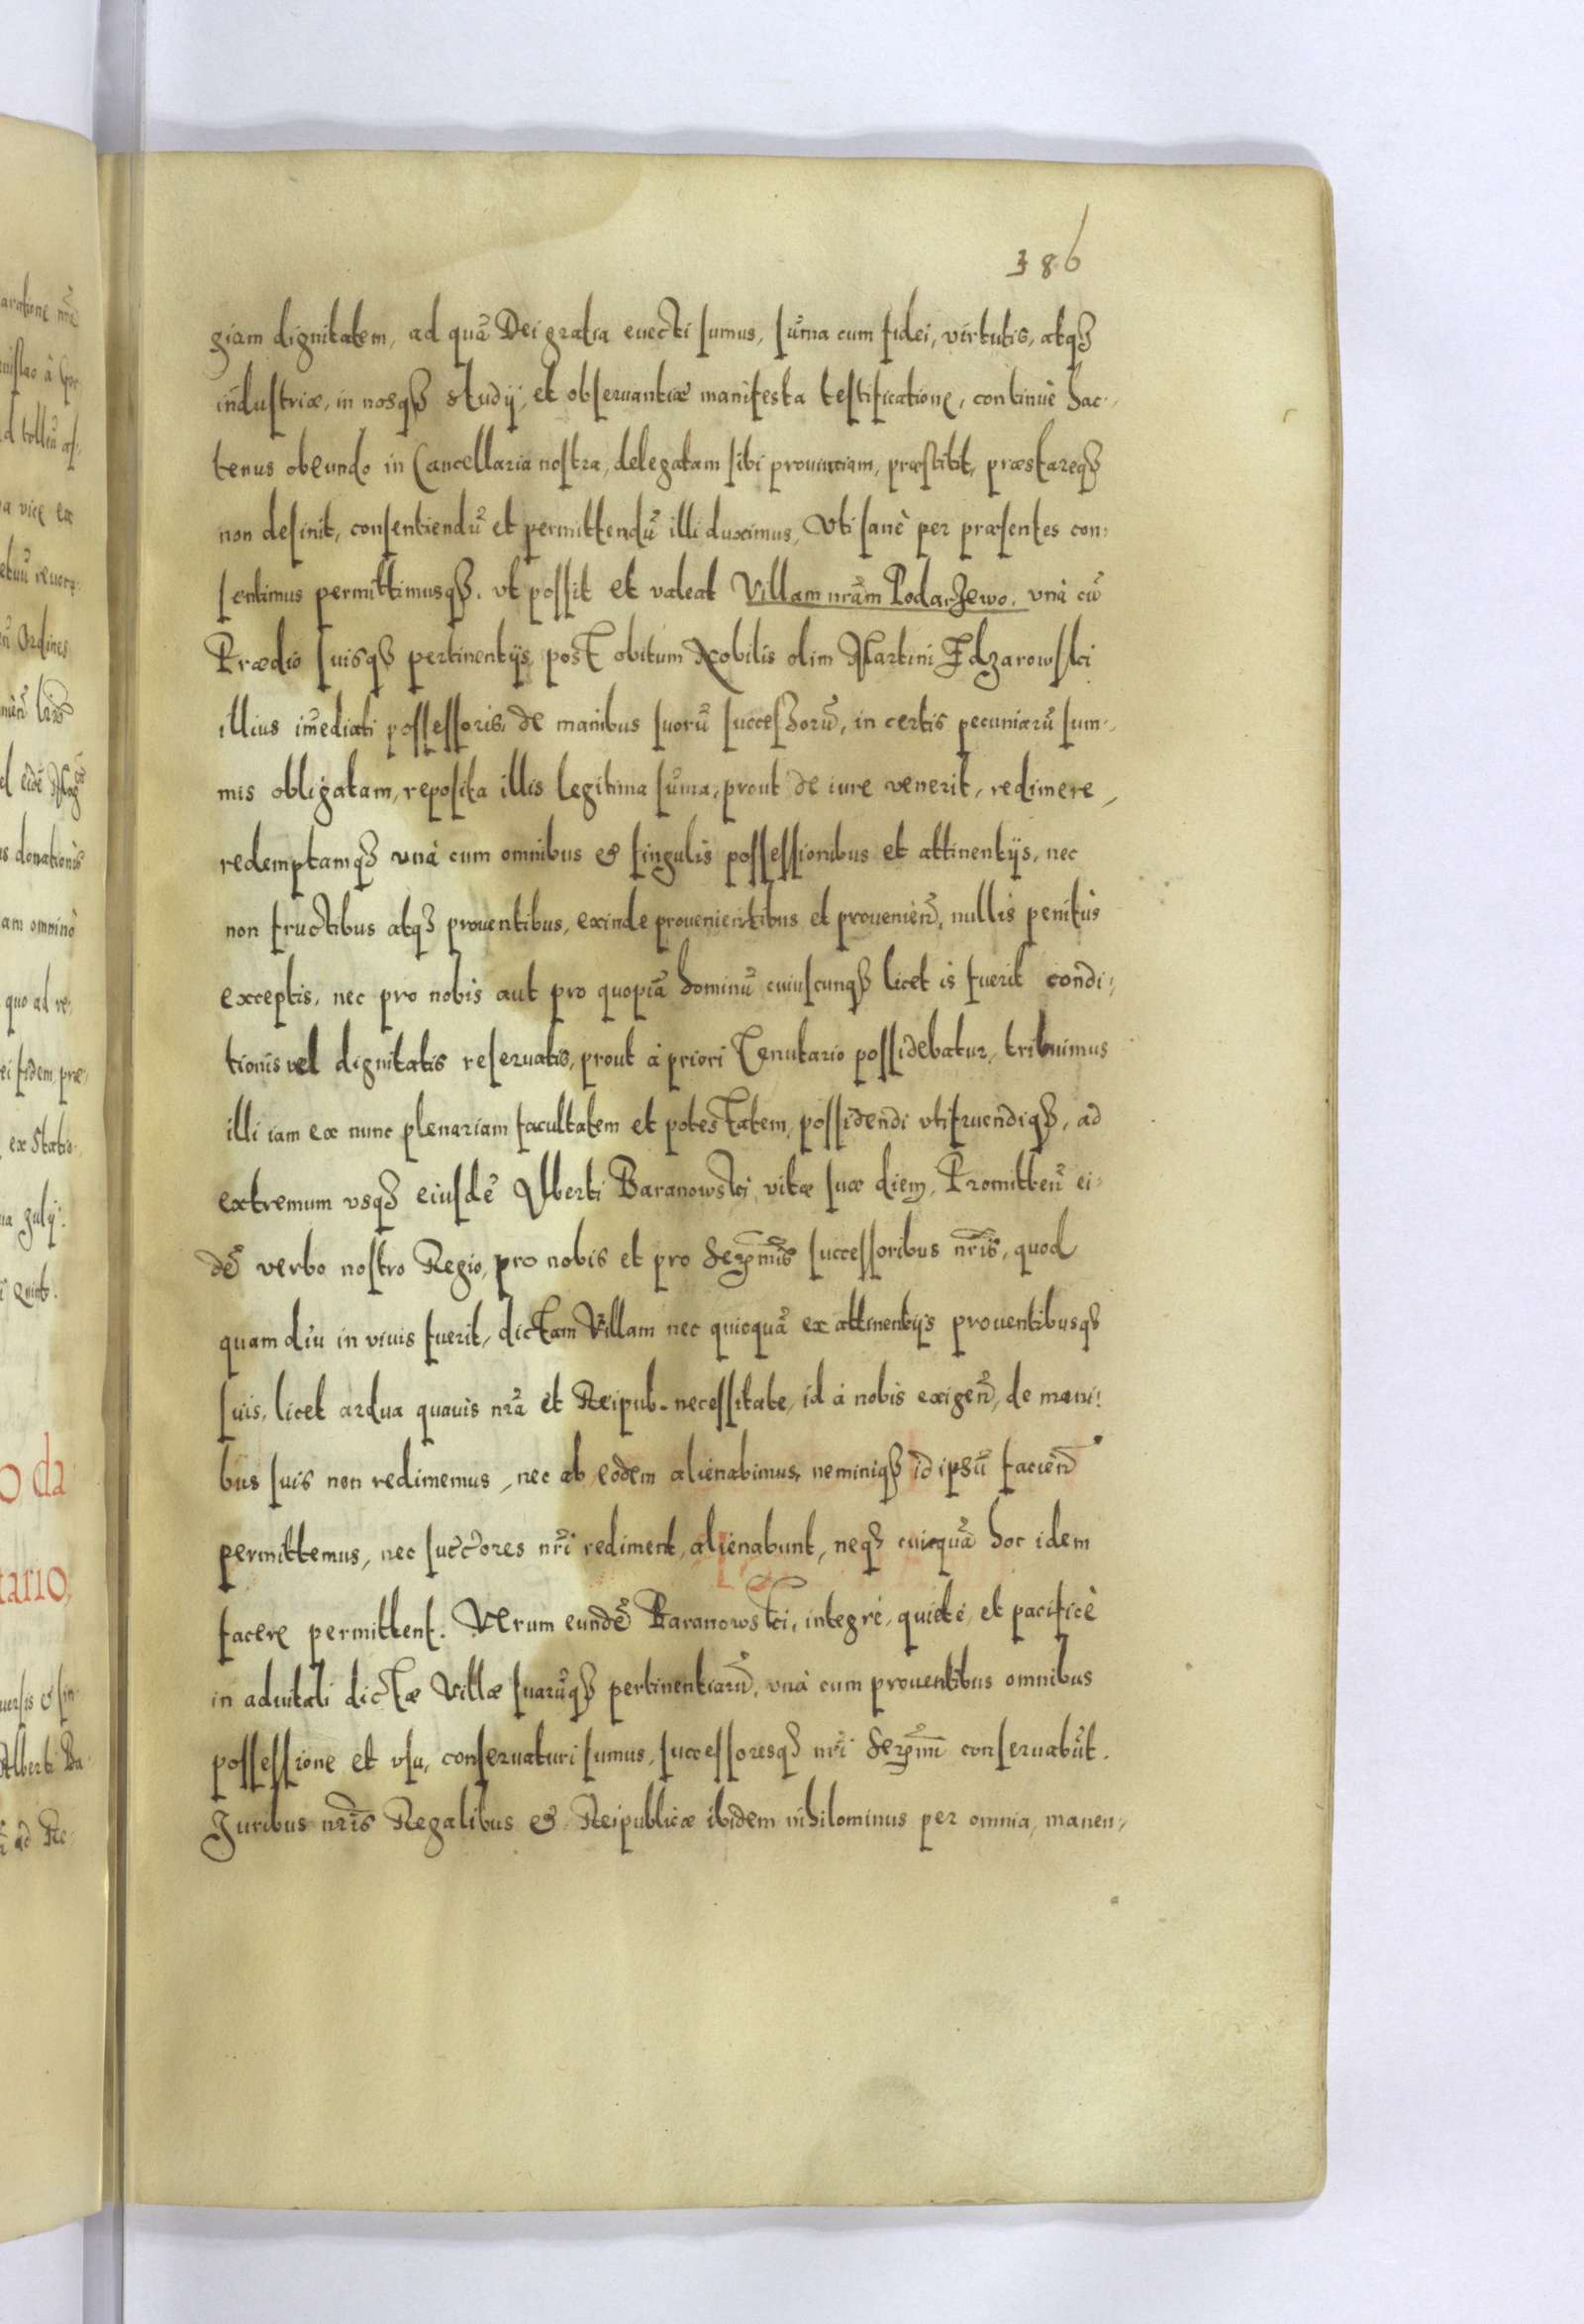 386
giam dignitatem, ad quã Dei gratia euecti sumus, sum̃a cum fidei, virtutis, atqȝ
industriæ, in nosqȝ studij, et obseruantiæ manifesta testificatione, continuè hac-
tenus obeundo in Cancellaria nostra, delegatam sibi prouinciam, præstitit, præstareqȝ
non desinit, consentiendũ et permittendũ illi duximus, Vti sanè per præsentes con-
sentimus permittimusqȝ. vt possit et valeat Villam nrãm Podarzewo, vnà cũ
Prædio suisqȝ pertinentijs, post obitum Nobilis olim Martini
illius im̃ediati possessoris, de manibus suorũ successorũ, in certis pecuniarũ sum-
mis obligatam, reposita illis legitima sum̃a, prout de iure venerit, redimere,
redemptamqȝ vnà cum omnibus & singulis possessionibus et attinentijs, nec
non fructibus atqȝ prouentibus, exinde prouenientibus et prouenieñ, nullis penitùs
exceptis, nec pro nobis aut pro quopiã hominũ cuiuscunqȝ licet is fuerit condi-
tionis vel dignitatis reseruatis, prout à priori Tenutario possidebatur, tribuimus
illi iam ex nunc plenariam facultatem et potestatem, possidendi vtifruendiqȝ, ad
extremum vsqȝ eiusdẽ Alberti Baranowski vitæ suæ diem, Promitteñ ei-
dẽ verbo nostro Regio, pro nobis et pro Serenmis successoribus nr̃is, quod
quam diu in viuis fuerit, dictam Villam nec quicquã ex attinentijs prouentibusqȝ
suis, licet ardua quauis nrã et Reipub. necessitate, id à nobis exigeñ, de mani-
bus suis non redimemus, nec ab eodem alienabimus, neminiqȝ id ipsũ facieñ
permittemus, nec succ̃ores nr̃i rediment, alienabunt, neqȝ cuiquã hoc idem
facere permittent. Verum eundẽ Baranowski, integrè, quietè, et pacificè
in aduitali dictæ Villæ suarũqȝ pertinentiarũ, vnà cum prouentibus omnibus
possessione et vsu, conseruaturi sumus, successoresqȝ nr̃i Serenmi conseruabũt.
Juribus nr̃is Regalibus & Reipublicæ ibidem nihilominus per omnia, manen-